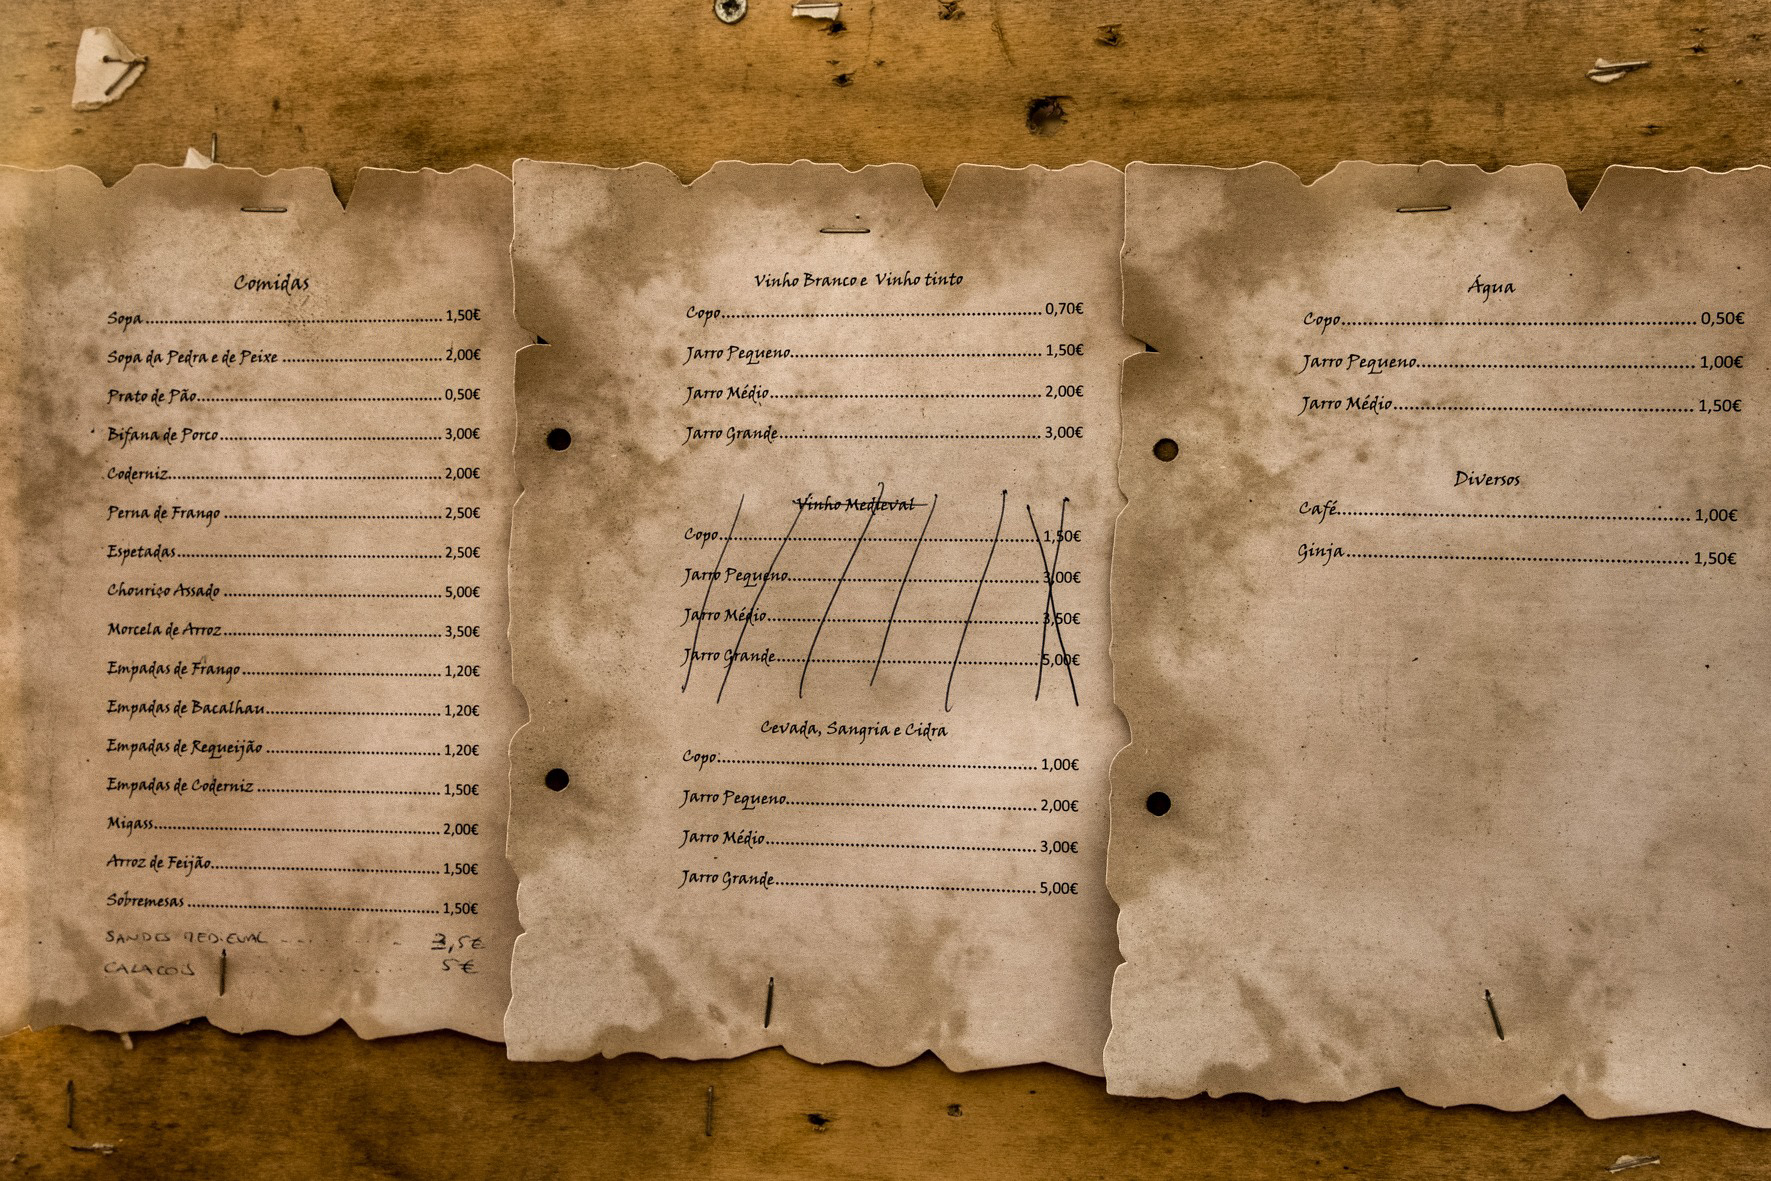 Comidas
Sopa 1,50€
Sopa da Pedra e de Peixe 2,00€
Prato de Pão 0,50€
Bifana de Porco 3,00€
Coderniz 2,00€
Perna de Frango 2,50€
Espetadas 2,50€
Chouriço Assado 5,00€
Morcela de Arroz 3,50€
Empadas de Frango 1,20€
Empadas de Bacalhau 1,20€
Empadas de Requeijão 1,20€
Empadas de Coderniz 1,50€
Migass 2,00€
Arroz de Feijão 1,50€
Sobremesas 1,50€
SANDES MEDIEVAL 3,5€
5€
Vinho Branco e Vinho tinto
Copo 0,70€
Jarro Pequeno 1,50€
Jarro Médio 2,00€
Jarro Grande 3,00€
Vinho Medieval
Copo 1,50€
Jarro Pequeno 3,00€
Jarro Médio 3,50€
Jarro Grande 5,00€
Cevada, Sangria e Cidra
Copo 1,00€
Jarro Pequeno 2,00€
Jarro Médio 3,00€
Jarro Grande 5,00€
Água
Copo 0,50€
Jarro Pequeno 1,00€
Jarro Médio 1,50€
Diversos
Café 1,00€
Ginja 1,50€